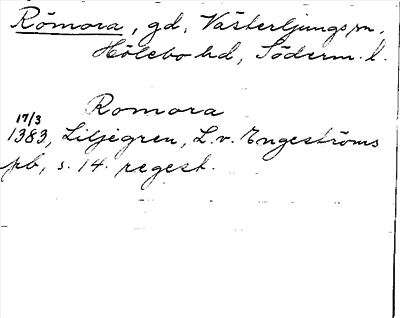 Römora, gd, Västerljungs sn,
Hölebo hd, Söderm. l.
Romora
17/3
1383, Liljegren, L. v. Engeströms
pb, s. 14. regest.